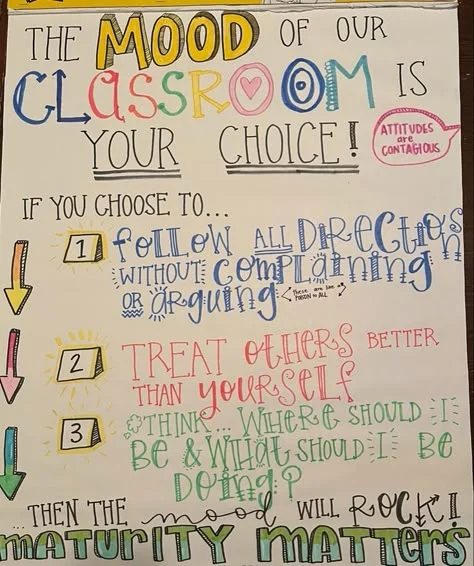 THE MOOD OF OUR
CLASSROOM IS
YOUR CHOICE!
ATTITUDES
are
CONTAGIOUS
IF YOU CHOOSE TO...
1 follow ALL DIRECTIONS
WITHOUT complaining
OR arguing
these are like
POISON to ALL
2 TREAT others BETTER
THAN yourself
3 THINK... WHERE SHOULD I
BE & WHAT SHOULD I BE
DOING?
...THEN THE mood WILL ROCK!
MATURITY MATTERS